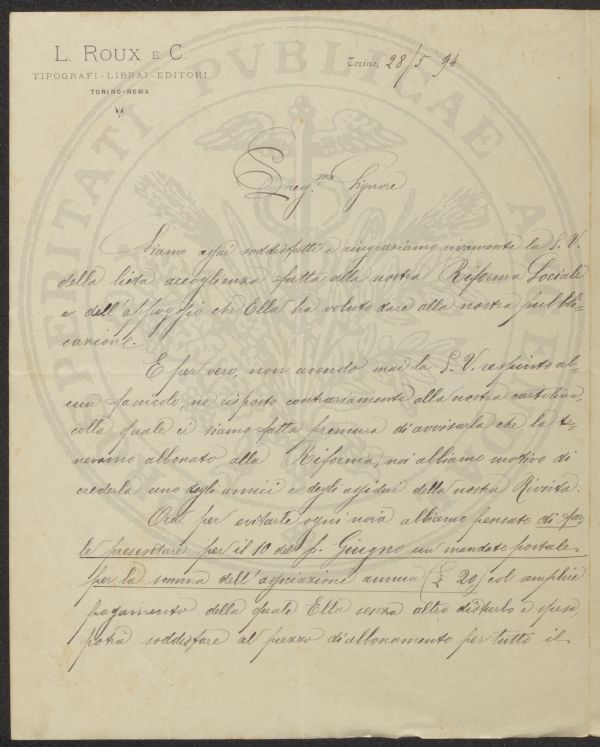 L. ROUX E C.
TIPOGRAFI-LIBRAI-EDITORI
TORINO-ROMA
Torino, 28/5 94
PERITATI PVBLICAE
Preg.mo Signore
Siamo assai soddisfatti e ringraziamo vivamente la S. V.
della lieta accoglienza fatta alla nostra Riforma Sociale
e dell'appoggio che Ella ha voluto dare alla nostra pubbli-
cazione.
E per vero, non avendo mai la S. V. respinto al-
cun fascicolo, ne risposto contrariamente alla nostra cartolina,
colla quale ci siamo fatta premura di avvisarla che la te-
nevamo abbonato alla Riforma, noi abbiamo motivo di
crederla uno degli amici e degli assidui della nostra Rivista.
Ora per evitarle ogni noia abbiamo pensato di far-
le presentare per il 10 del p. Giugno un mandato postale
per la somma dell'associazione annua (£ 20) col semplice
pagamento della quale Ella senza altro disturbo e spesa,
potrà soddisfare al prezzo di abbonamento per tutto il